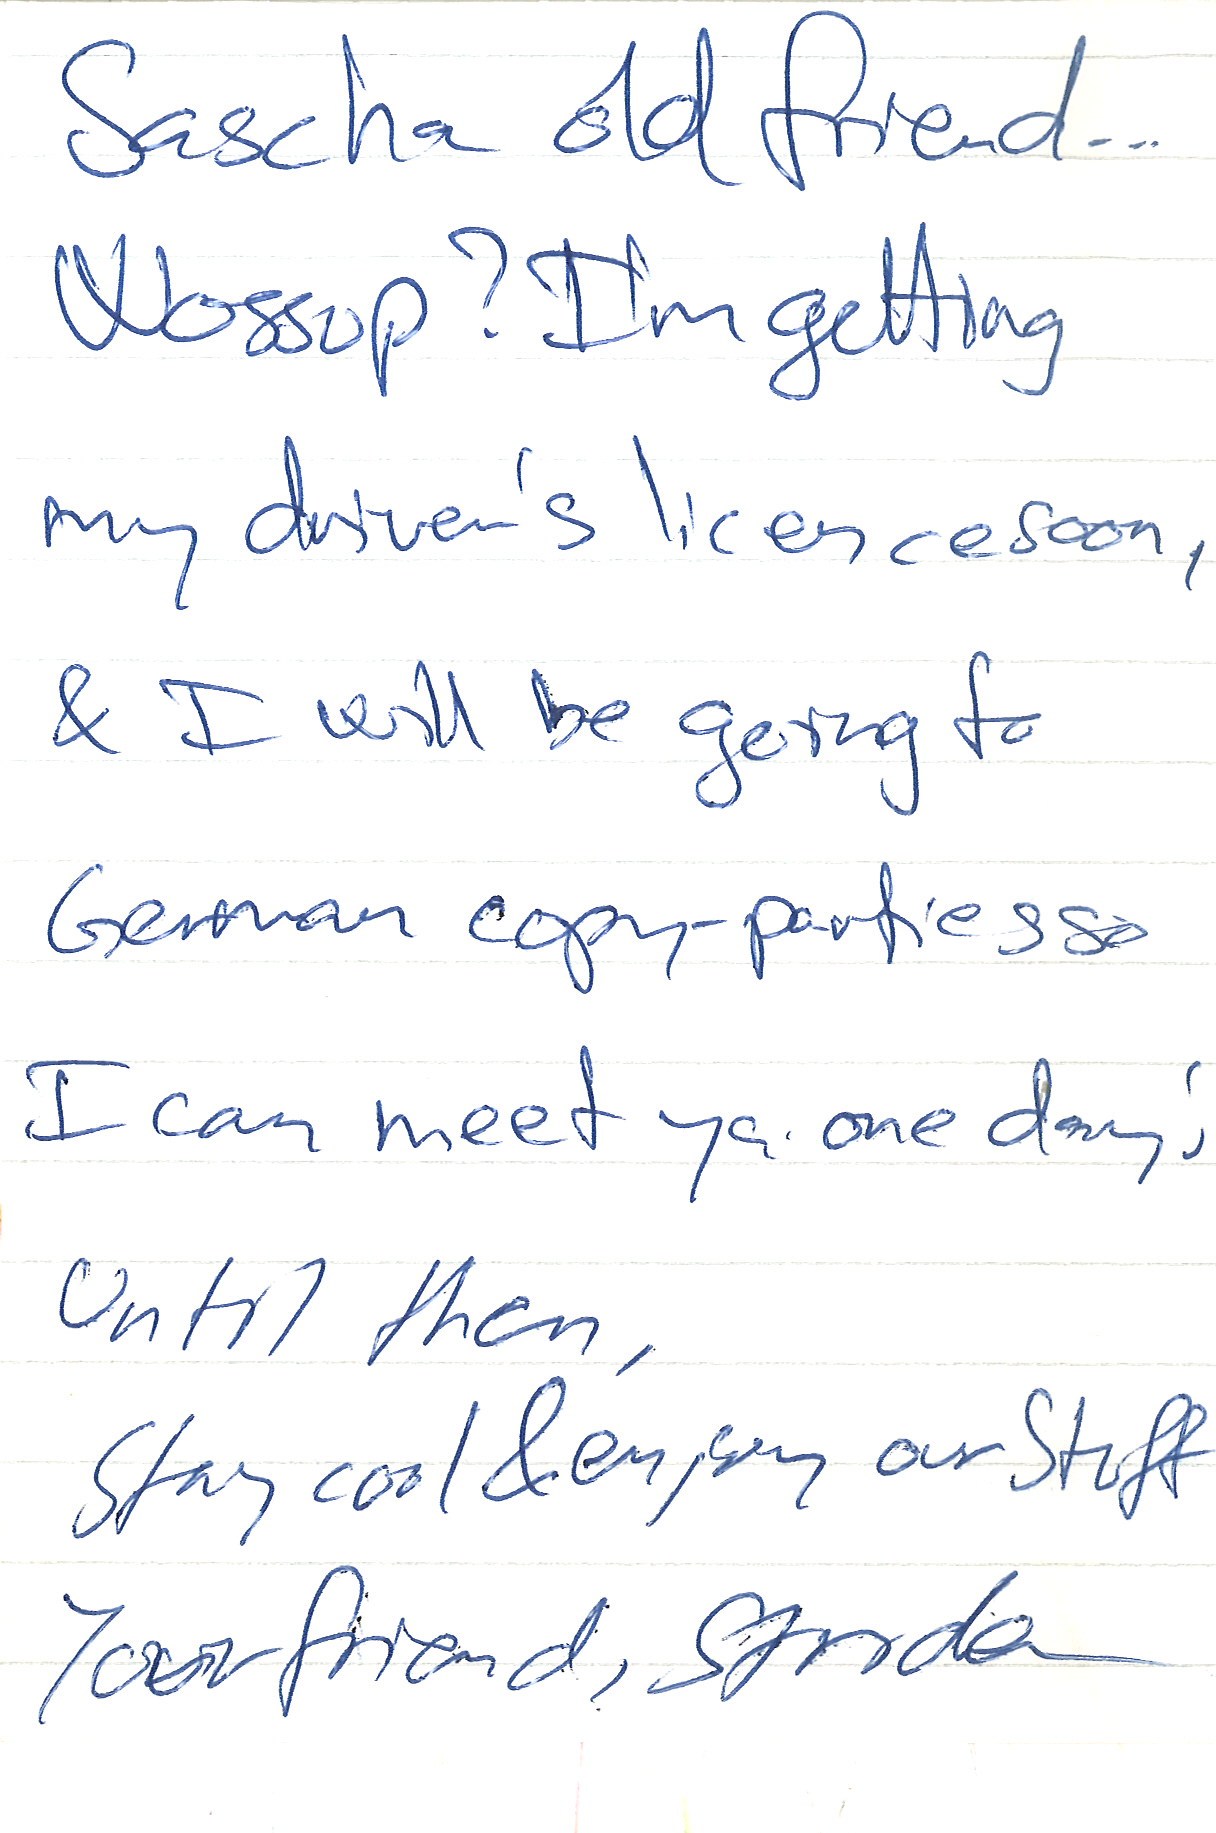 Sascha old friend...
Wossop? I'm getting
my driver's licence soon,
& I will be going to
German copy-parties so
I can meet ya one day!
Until then,
Stay cool & enjoy our Stuff
Your friend, Strider